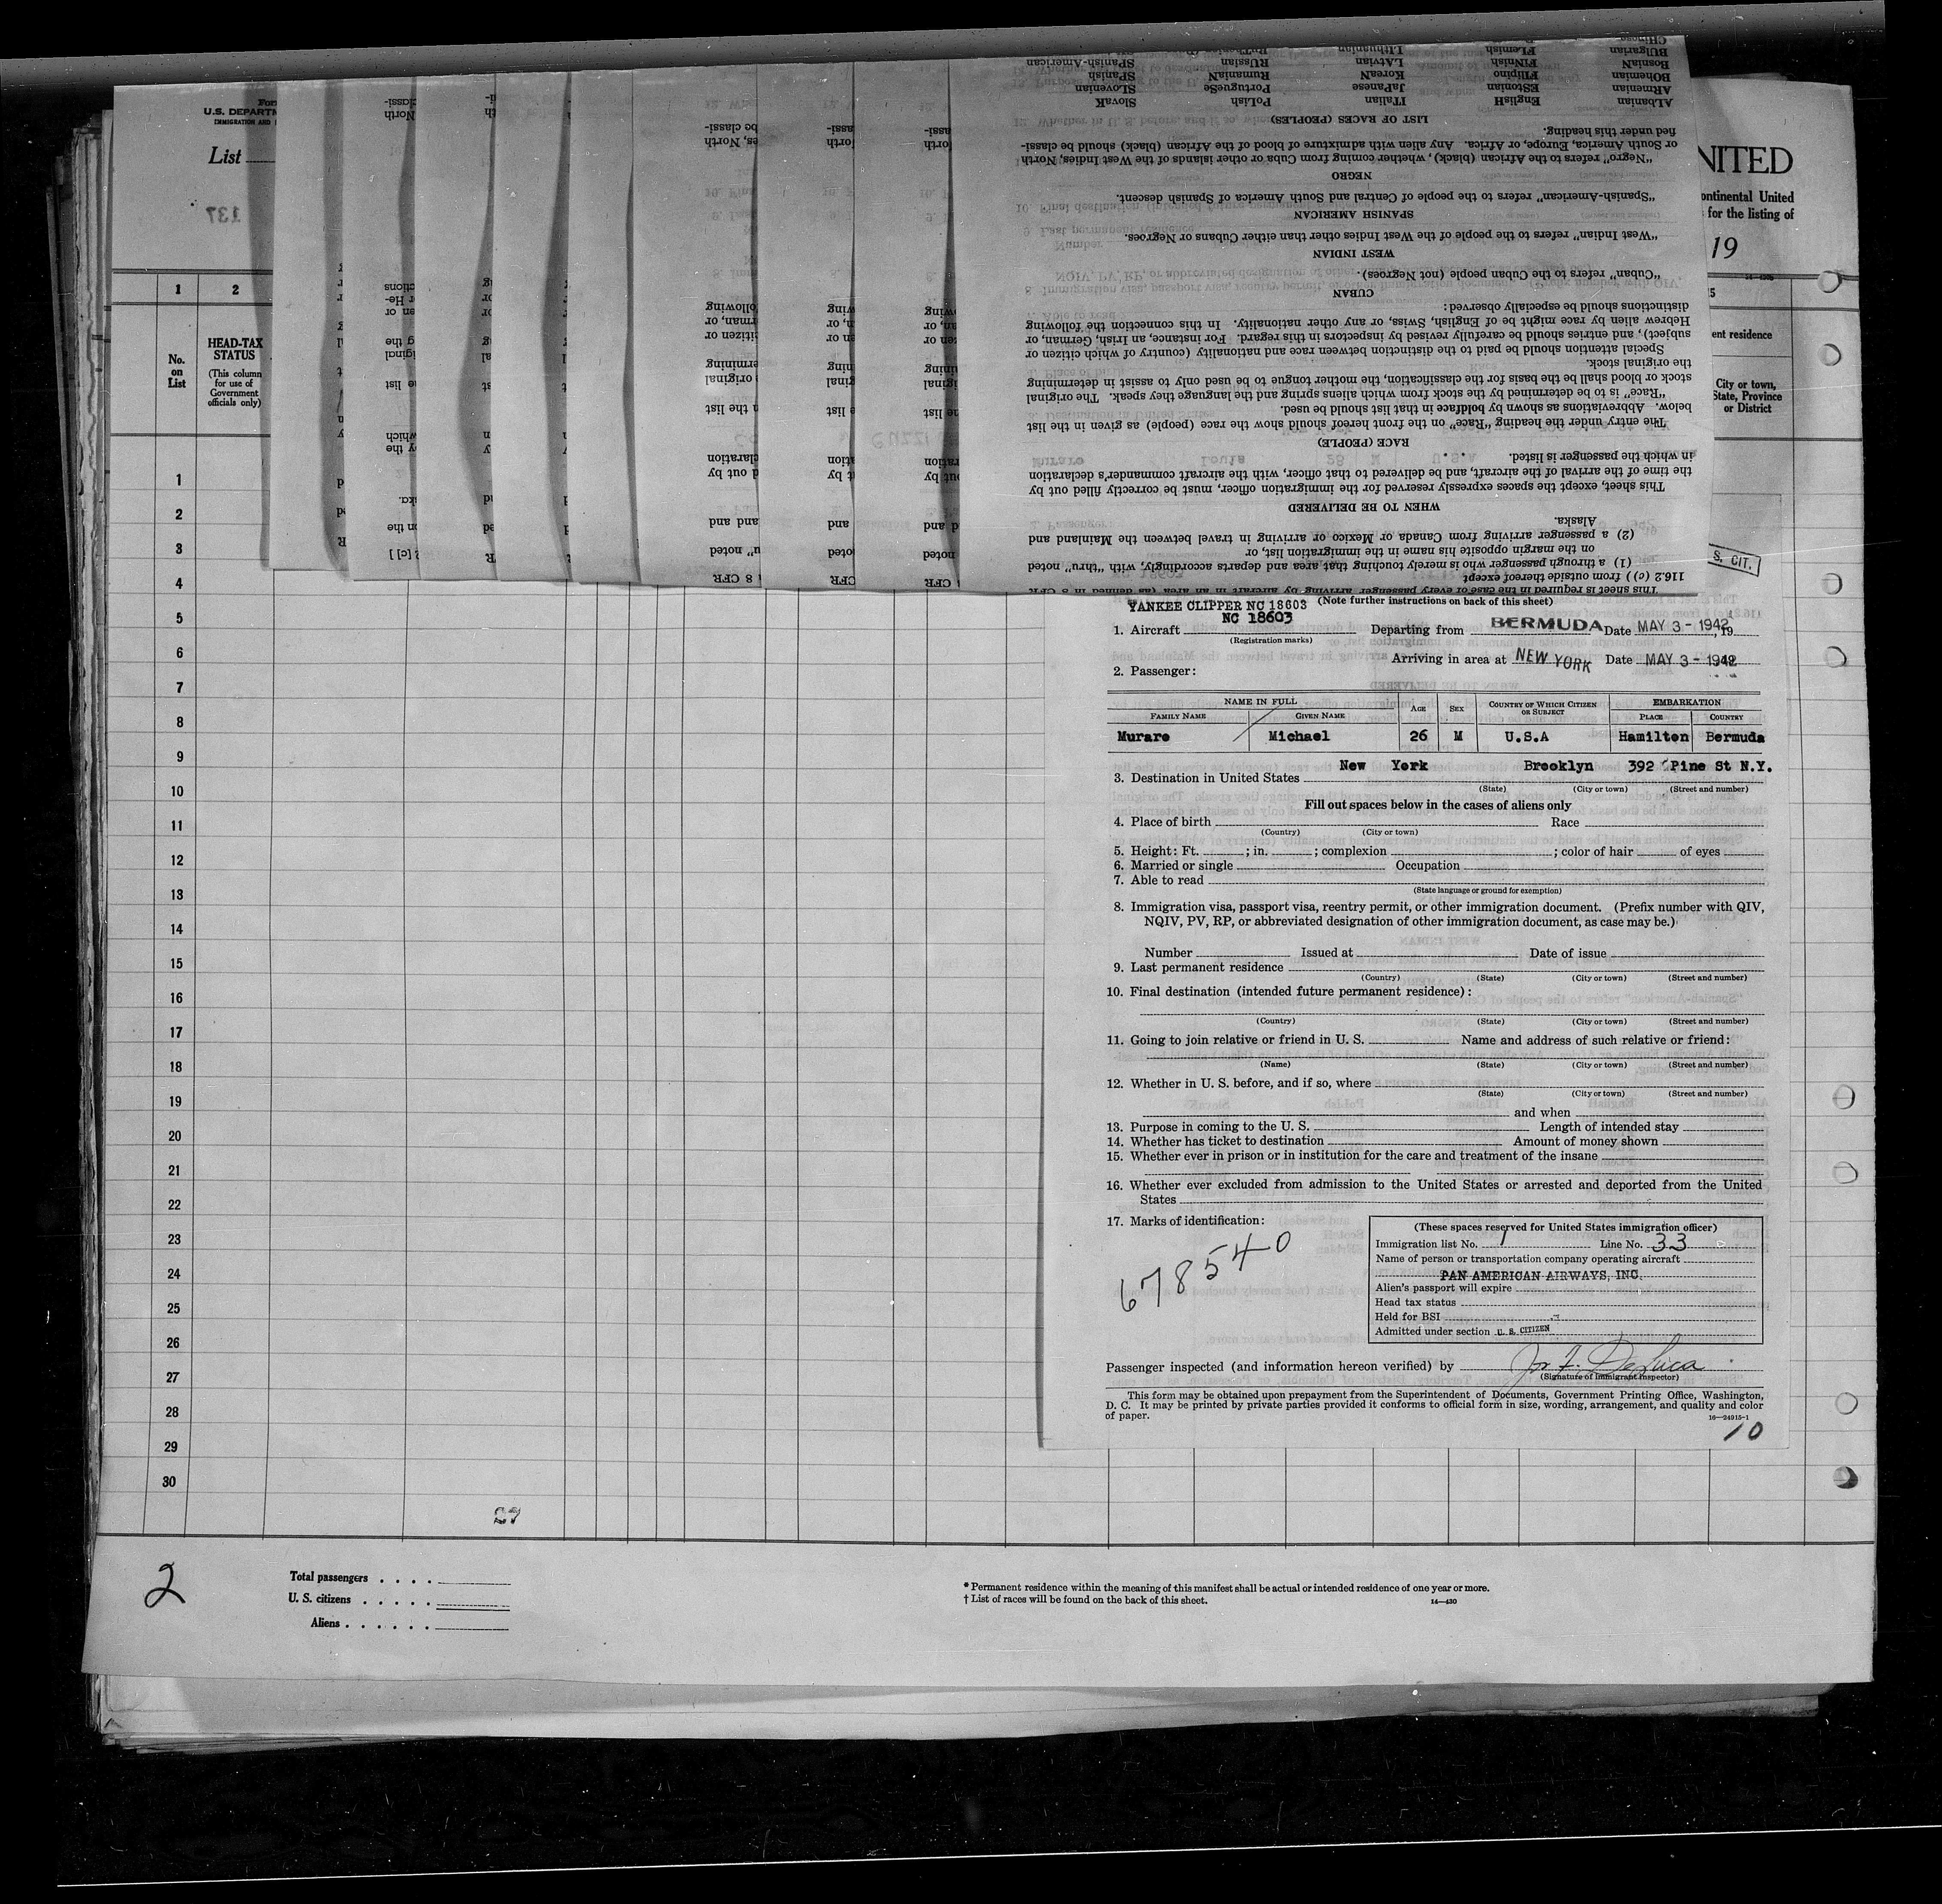 Form
U.S. DEPARTM
IMMIGRATION AND
List
137
1 2
No. on List
HEAD-TAX STATUS
(This column for use of Government officials only)
NITED
ontinental United
for the listing of
19
ent residence
City or town, State, Province or District
S. CIT.
1
2
3
4
5
6
7
8
9
10
11
12
13
14
15
16
17
18
19
20
21
22
23
24
25
26
27
28
29
30
27
2
Total passengers
U. S. citizens
Aliens
* Permanent residence within the meaning of this manifest shall be actual or intended residence of one year or more.
† List of races will be found on the back of this sheet.
14—430
This sheet is required in the case of every passenger arriving by aircraft in an area (as defined in 8 CFR
116.2 (c)) from outside thereof except
(1) a through passenger who is merely touching that area and departs accordingly, with "thru" noted
on the margin opposite his name in the immigration list, or
(2) a passenger arriving from Canada or Mexico or arriving in travel between the Mainland and
Alaska.
WHEN TO BE DELIVERED
This sheet, except the spaces expressly reserved for the immigration officer, must be correctly filled out by
the time of the arrival of the aircraft, and be delivered to that officer, with the aircraft commander's declaration
in which the passenger is listed.
RACE (PEOPLE)
The entry under the heading "Race" on the front hereof should show the race (people) as given in the list
below. Abbreviations as shown by boldface in that list should be used.
"Race" is to be determined by the stock from which aliens spring and the language they speak. The original
stock or blood shall be the basis for the classification, the mother tongue to be used only to assist in determining
the original stock.
Special attention should be paid to the distinction between race and nationality (country of which citizen or
subject), and entries should be carefully revised by inspectors in this regard. For instance, an Irish, German, or
Hebrew alien by race might be of English, Swiss, or any other nationality. In this connection the following
distinctions should be especially observed:
CUBAN
"Cuban" refers to the Cuban people (not Negroes).
WEST INDIAN
"West Indian" refers to the people of the West Indies other than either Cubans or Negroes.
SPANISH AMERICAN
"Spanish-American" refers to the people of Central and South America of Spanish descent.
NEGRO
"Negro" refers to the African (black), whether coming from Cuba or other islands of the West Indies, North
or South America, Europe, or Africa. Any alien with admixture of blood of the African (black) should be classi-
fied under this heading.
LIST OF RACES (PEOPLES)
ALbanian EnglisH ITalian PoLish SlovaK
ARmenian EStonian JaPanese PortugueSe SLovenian
BOhemian FIlipino KoreaN RumaniaN SPanish
BosniaN FiNNish LAtvian RUssian SPanish-American
BUlgarian FLemish LIthuanian
CHinese
YANKEE CLIPPER NC 18603 (Note further instructions on back of this sheet)
NC 18603
1. Aircraft Departing from BERMUDA Date MAY 3 - 1942, 19
(Registration marks)
Arriving in area at NEW YORK Date MAY 3 - 1942
2. Passenger:
NAME IN FULL AGE SEX COUNTRY OF WHICH CITIZEN OR SUBJECT EMBARKATION
FAMILY NAME GIVEN NAME PLACE COUNTRY
Muraro Michael 26 M U.S.A Hamilton Bermuda
New York Brooklyn 392 Pine St N.Y.
3. Destination in United States
(State) (City or town) (Street and number)
Fill out spaces below in the cases of aliens only
4. Place of birth Race
(Country) (City or town)
5. Height: Ft. ; in. ; complexion ; color of hair of eyes
6. Married or single Occupation
7. Able to read
(State language or ground for exemption)
8. Immigration visa, passport visa, reentry permit, or other immigration document. (Prefix number with QIV,
NQIV, PV, RP, or abbreviated designation of other immigration document, as case may be.)
Number Issued at Date of issue
9. Last permanent residence
(Country) (State) (City or town) (Street and number)
10. Final destination (intended future permanent residence):
(Country) (State) (City or town) (Street and number)
11. Going to join relative or friend in U. S. Name and address of such relative or friend:
(Name) (State) (City or town) (Street and number)
12. Whether in U. S. before, and if so, where
(State) (City or town) (Street and number)
and when
13. Purpose in coming to the U. S. Length of intended stay
14. Whether has ticket to destination Amount of money shown
15. Whether ever in prison or in institution for the care and treatment of the insane
16. Whether ever excluded from admission to the United States or arrested and deported from the United
States
17. Marks of identification:
678540
(These spaces reserved for United States immigration officer)
Immigration list No. 1 Line No. 33
Name of person or transportation company operating aircraft
PAN AMERICAN AIRWAYS, INC.
Alien's passport will expire
Head tax status
Held for BSI
Admitted under section U. S. CITIZEN
Passenger inspected (and information hereon verified) by Jos F. DeLuca
(Signature of Immigrant Inspector)
This form may be obtained upon prepayment from the Superintendent of Documents, Government Printing Office, Washington,
D. C. It may be printed by private parties provided it conforms to official form in size, wording, arrangement, and quality and color
of paper.
16—24915-1
10